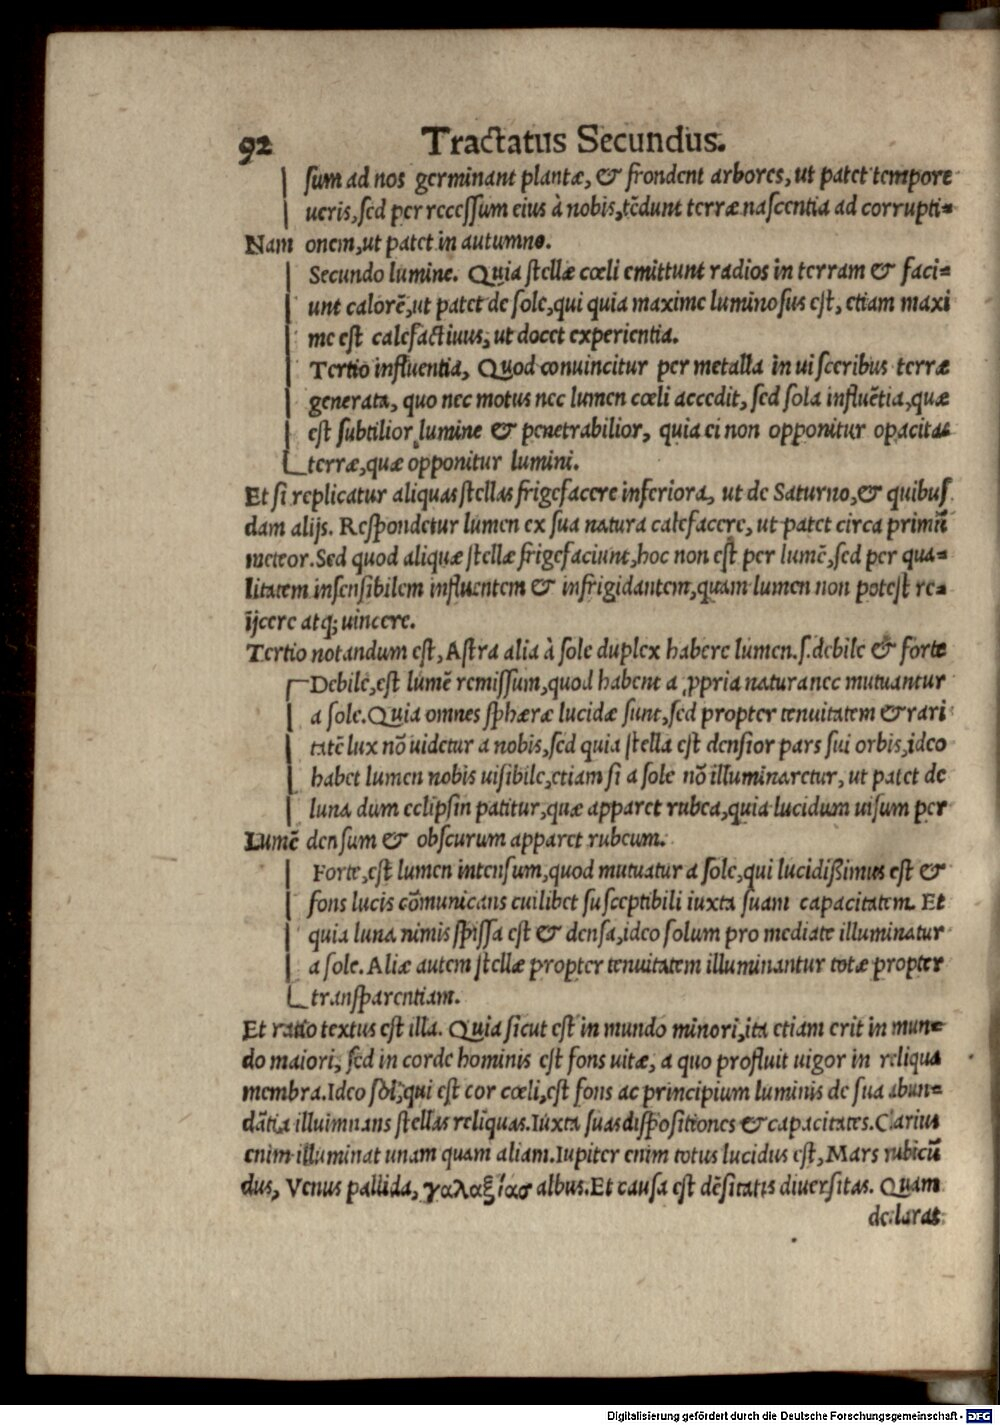 92 Tractatus Secundus.
sum ad nos germinant plantæ, & frondent arbores, ut patet tempore
ueris, sed per recessum eius à nobis, tēdunt terræ nascentia ad corrupti=
Nam onem, ut patet in autumno.
Secundo lumine. Quia stellæ cœli emittunt radios in terram & faci=
unt calorē, ut patet de sole, qui quia maxime luminosus est, etiam maxi
me est calefactiuus, ut docet experientia.
Tertio influentia, Quod conuincitur per metalla in uisceribus terræ
generata, quo nec motus nec lumen cœli accedit, sed sola influētia, quæ
est subtilior lumine & penetrabilior, quia ei non opponitur opacitas
terræ, quæ opponitur lumini.
Et si replicatur aliquas stellas frigefacere inferiora, ut de Saturno, & quibus
dam alijs. Respondetur lumen ex sua natura calefacere, ut patet circa primū
meteor. Sed quod aliquæ stellæ frigefaciunt, hoc non est per lumē, sed per qua=
litatem insensibilem influentem & infrigidantem, quam lumen non potest re=
ijcere atq; uincere.
Tertio notandum est, Astra alia à sole duplex habere lumen. s. debile & forte
Debile, est lumē remissum, quod habent a ꝓpria natura nec mutuantur
a sole. Quia omnes sphæræ lucidæ sunt, sed propter tenuitatem & rari
tatē lux nō uidetur a nobis, sed quia stella est densior pars sui orbis, ideo
habet lumen nobis uisibile, etiam si a sole nō illuminaretur, ut patet de
luna dum eclipsin patitur, quæ apparet rubea, quia lucidum uisum per
Lumē densum & obscurum apparet rubeum.
Forte, est lumen intensum, quod mutuatur a sole, qui lucidißimus est &
fons lucis cōmunicans cuilibet susceptibili iuxta suam capacitatem. Et
quia luna nimis spissa est & densa, ideo solum pro medietate illuminatur
a sole. Aliæ autem stellæ propter tenuitatem illuminantur totæ propter
transparentiam.
Et ratio textus est illa. Quia sicut est in mundo minori, ita etiam erit in mun=
do maiori, sed in corde hominis est fons uitæ, a quo profluit uigor in reliqua
membra. Ideo sol, qui est cor cœli, est fons ac principium luminis de sua abun=
dātia illuimnans stellas reliquas. Iuxta suas dispositiones & capacitates. Clarius
enim illuminat unam quam aliam. Iupiter enim totus lucidus est, Mars rubicū
dus, Venus pallida, γαλαξίασ albus. Et causa est dēsitatis diuersitas. Quam
declarat
Digitalisierung gefördert durch die Deutsche Forschungsgemeinschaft - DFG